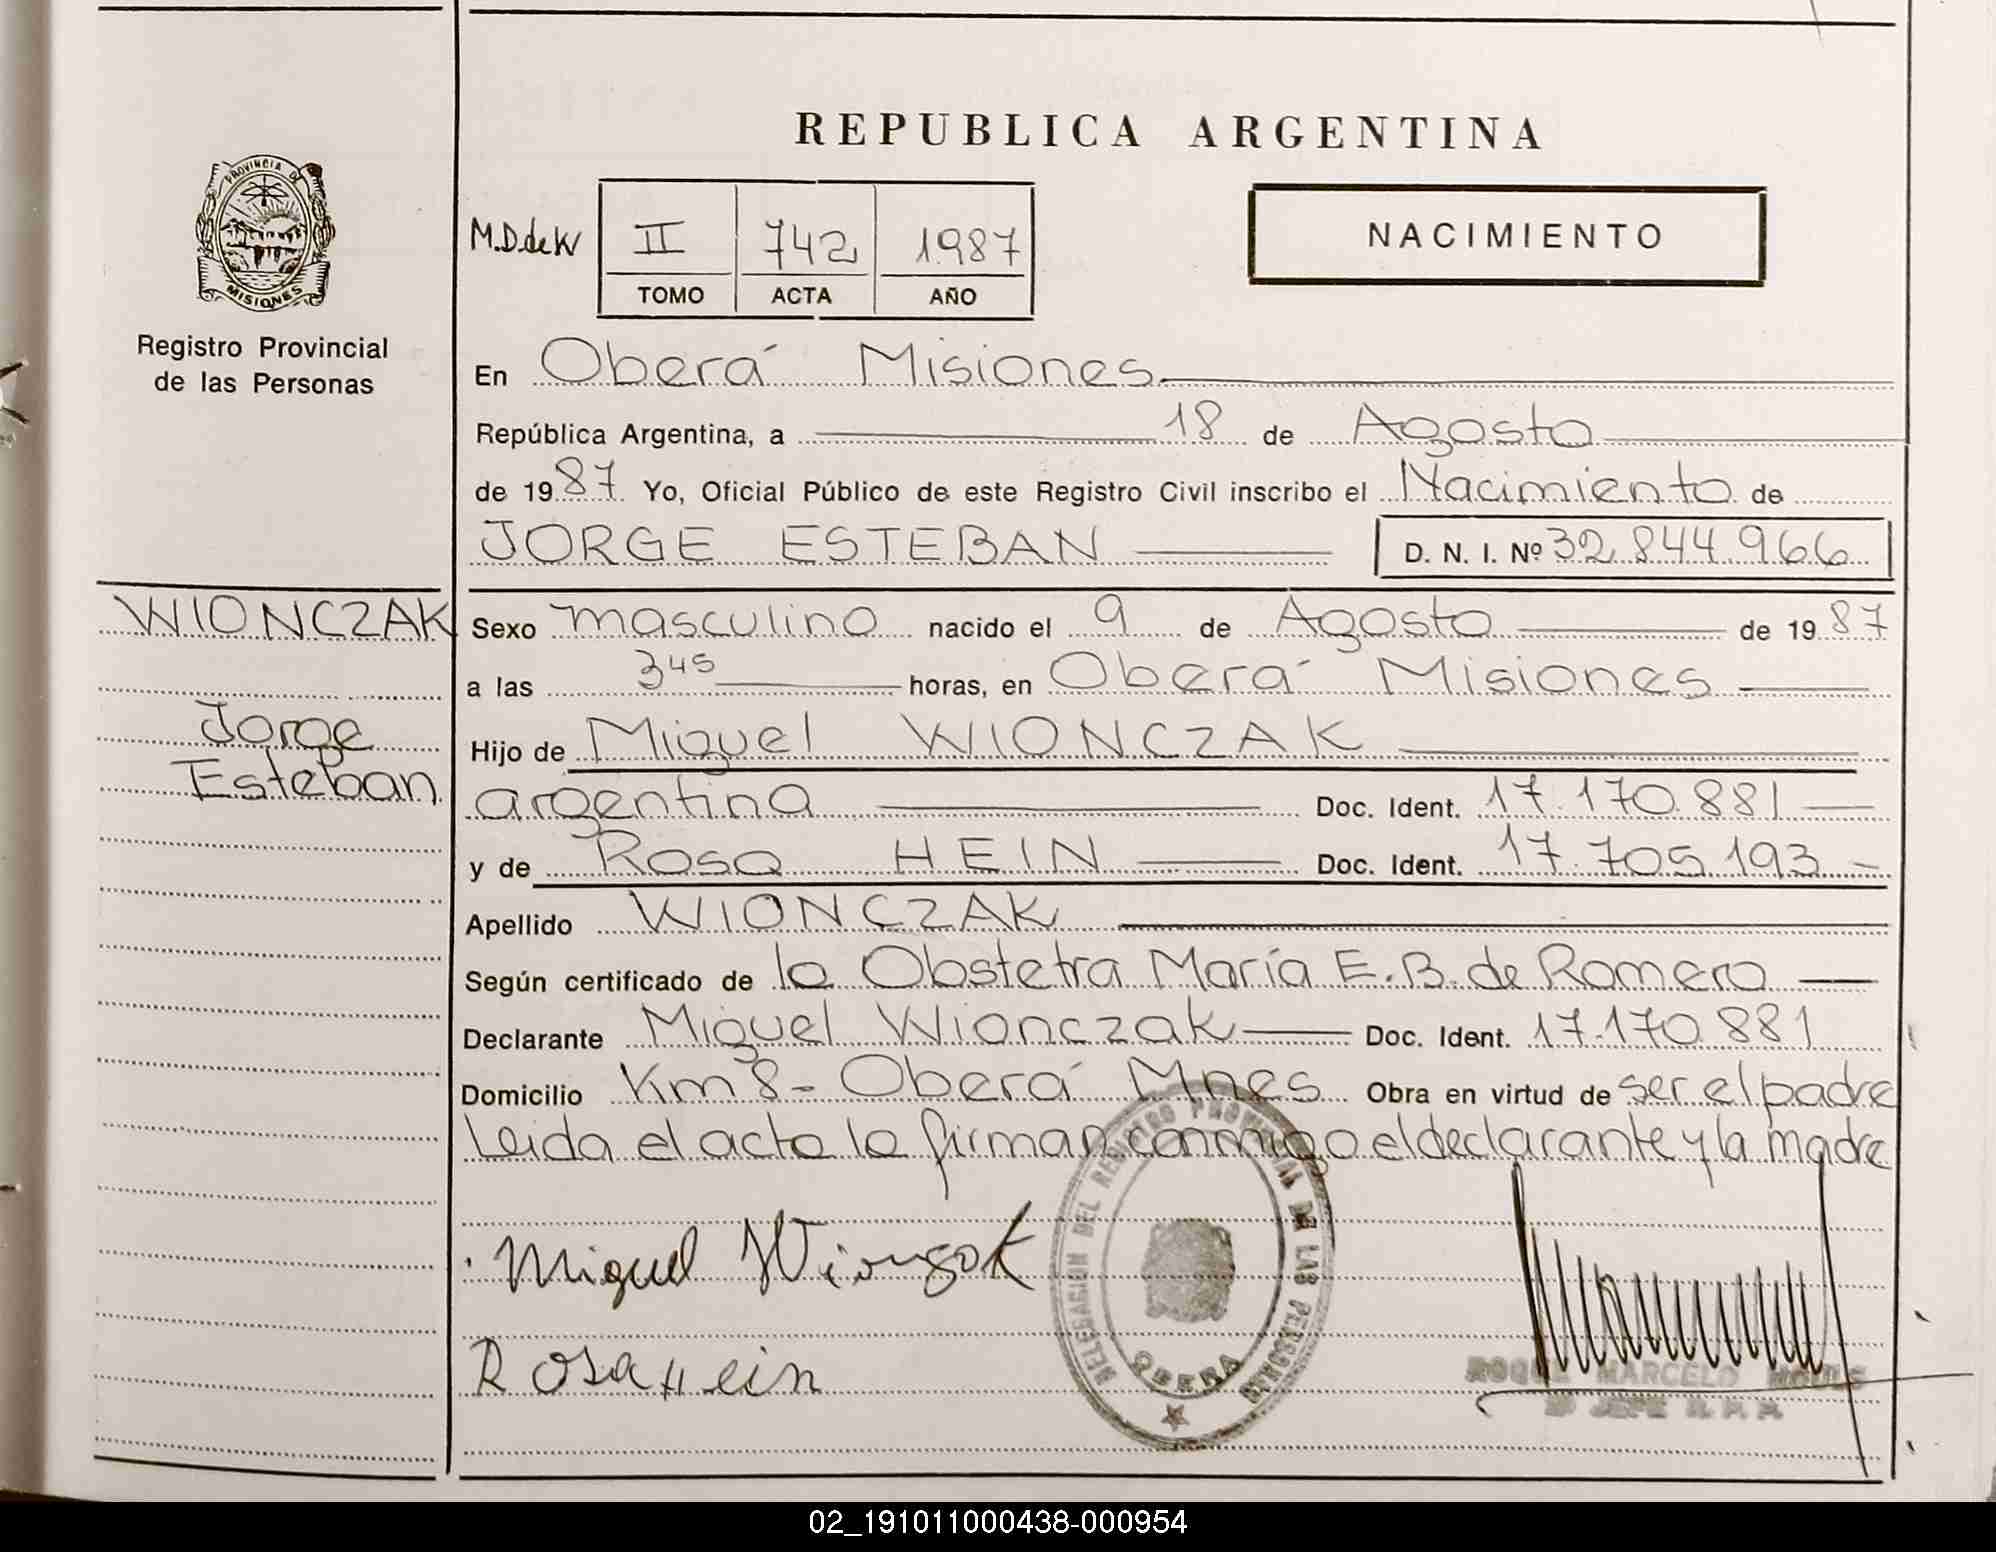 REPUBLICA ARGENTINA
PROVINCIA DE
MISIONES
Registro Provincial
de las Personas
M.D.de W
II 742 1987
TOMO ACTA AÑO
NACIMIENTO
En Oberá Misiones
República Argentina, a 18 de Agosto
de 1987 Yo, Oficial Público de este Registro Civil inscribo el Nacimiento de
JORGE ESTEBAN D. N. I. Nº 32.844.966
WIONCZAK
Jorge
Esteban
Sexo masculino nacido el 9 de Agosto de 1987
a las 3 45 horas, en Oberá Misiones
Hijo de Miguel WIONCZAK
argentina Doc. Ident. 17.170.881
y de Rosa HEIN Doc. Ident. 17.705.193
Apellido WIONCZAK
Según certificado de la Obstetra María E.B. de Romero
Declarante Miguel Wionczak Doc. Ident. 17.170.881
Domicilio Km 8 - Oberá Mnes Obra en virtud de ser el padre
Leida el acta la firman conmigo el declarante y la madre
Miguel Wionczak
Rosa Hein
DELEGACION DEL REGISTRO PROVINCIAL DE LAS PERSONAS
OBERA
ROQUE MARCELO
JEFE R. P. P.
02_191011000438-000954